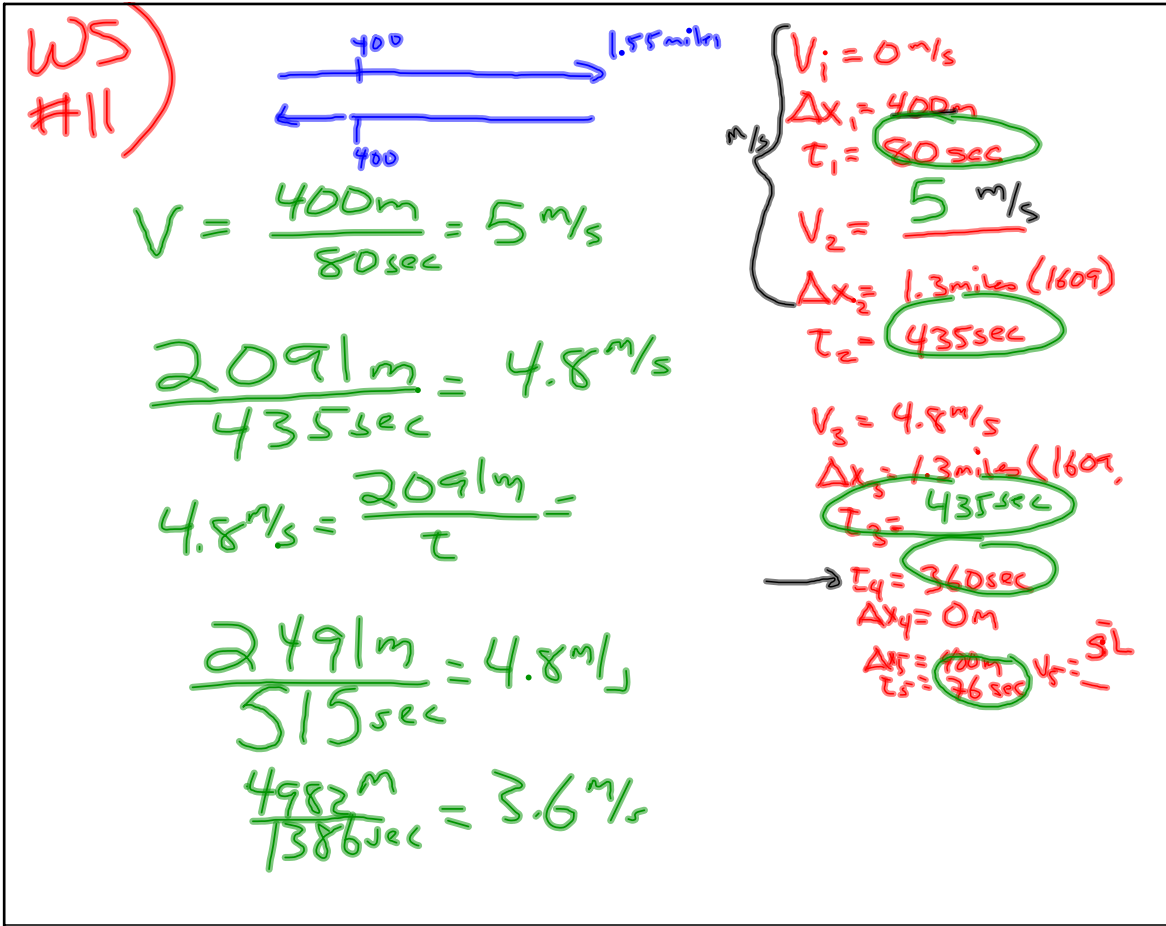 WS
#11)
400
1.55 miles
400
V = 400m / 80sec = 5 m/s
2091m / 435sec = 4.8 m/s
4.8 m/s = 2091m / t =
2491m / 515sec = 4.8 m/s
4982m / 1386sec = 3.6 m/s
m/s
Vi = 0 m/s
Δx1 = 400m
t1 = 80 sec
V2 = 5 m/s
Δx2 = 1.3miles (1609)
t2 = 435sec
V3 = 4.8 m/s
Δx3 = 1.3miles (1609.
t3 = 435sec
→ t4 = 360sec
Δx4 = 0m
Δx5 = 400m
t5 = 76 sec V5 =